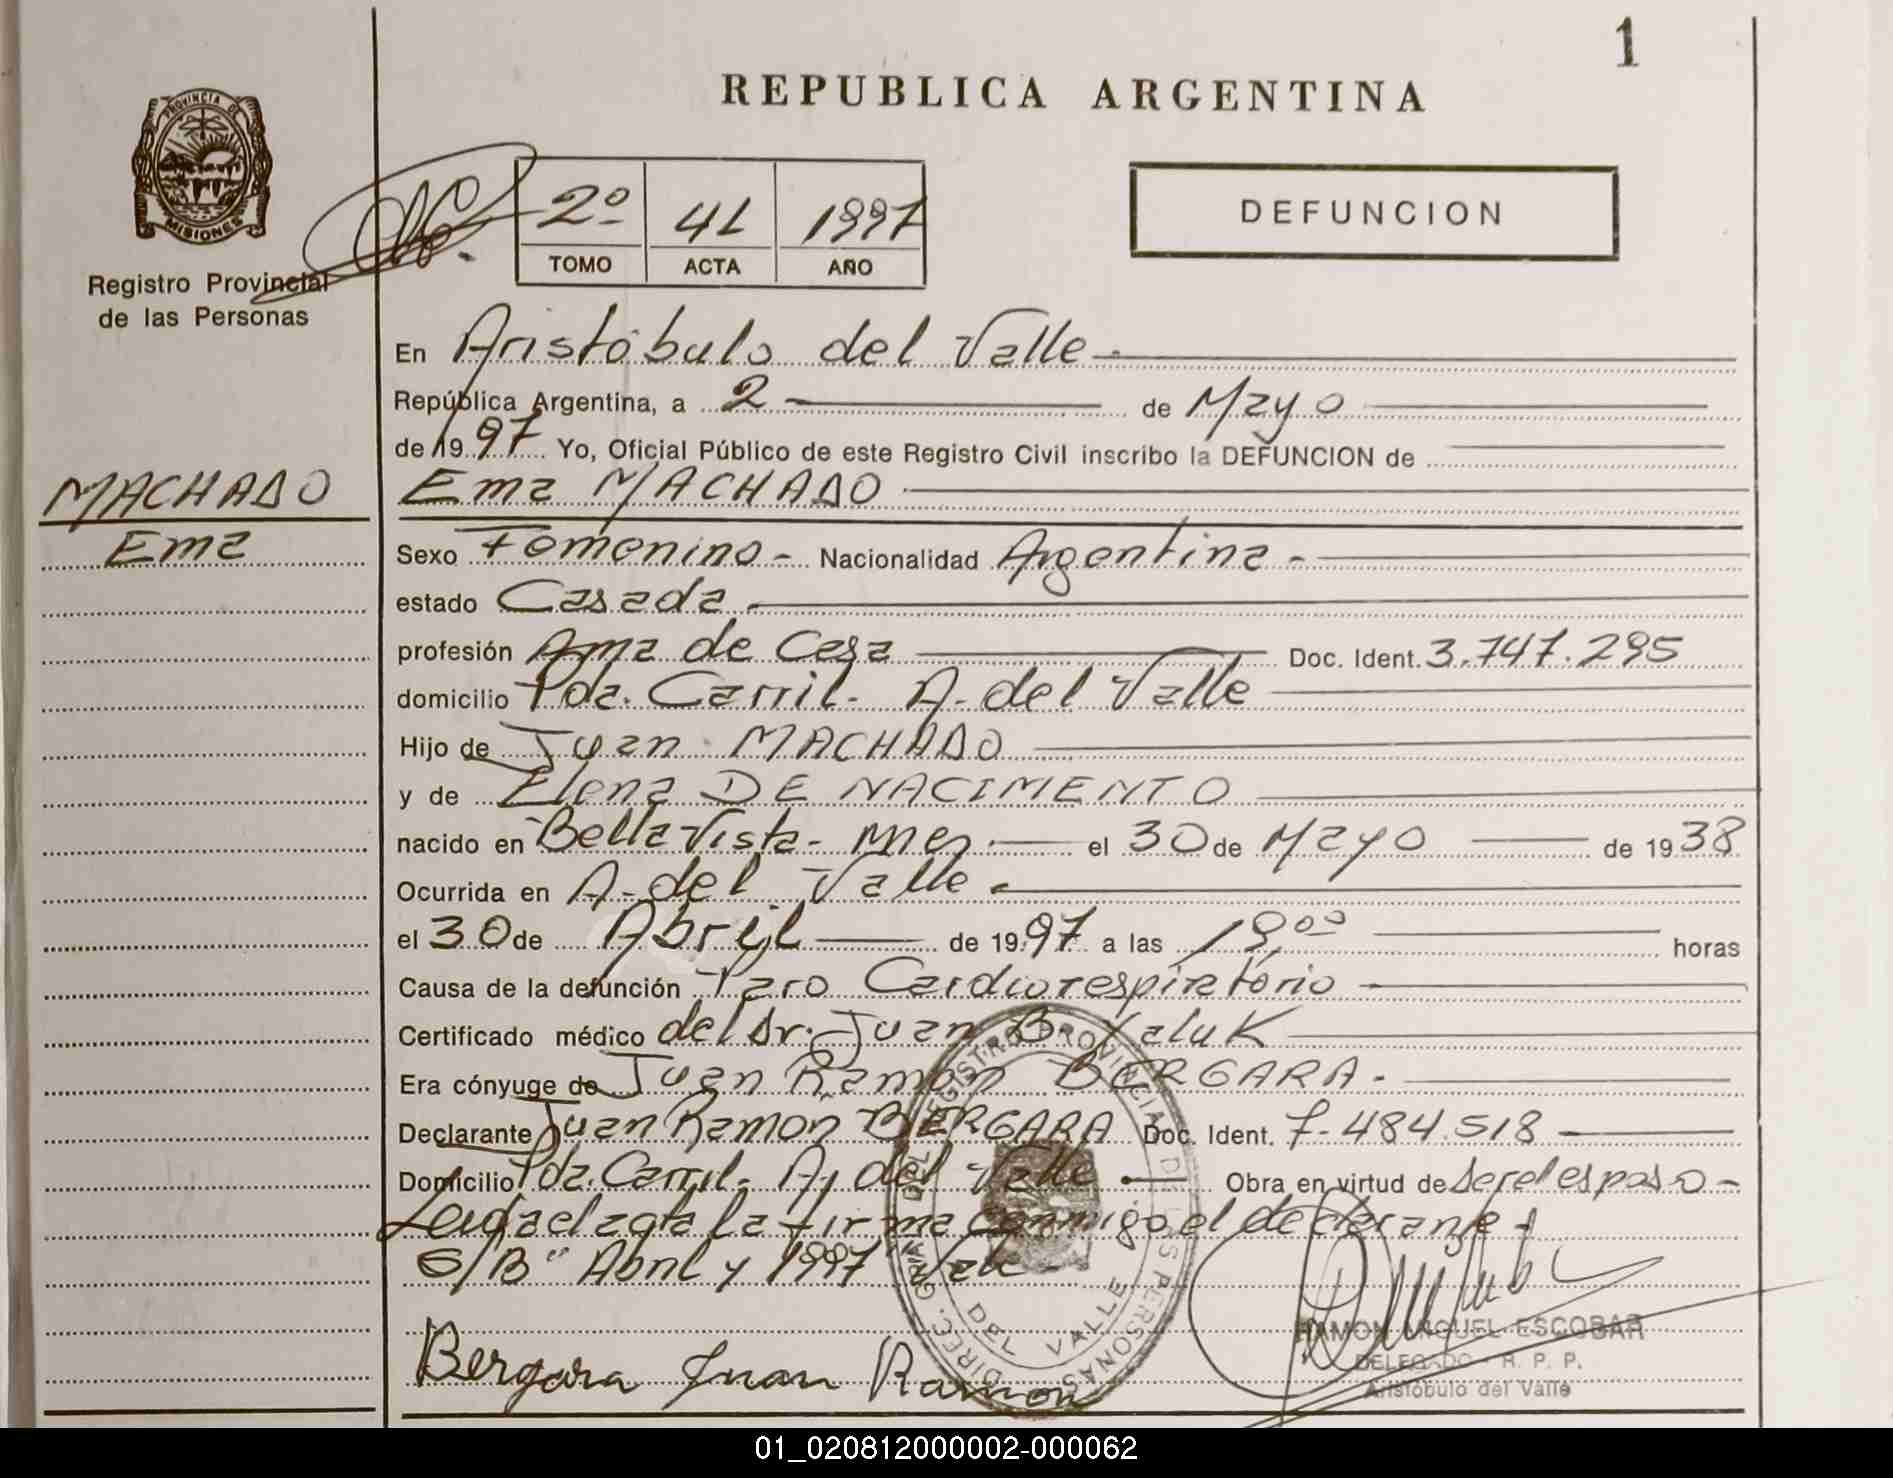 1
REPUBLICA ARGENTINA
PROVINCIA DE
MISIONES
Registro Provincial
de las Personas
2º 41 1997
TOMO ACTA AÑO
DEFUNCION
En Aristóbulo del Valle
República Argentina, a 2 de Mayo
de 1997 Yo, Oficial Público de este Registro Civil inscribo la DEFUNCION de
MACHADO
Ema
Ema MACHADO
Sexo Femenino - Nacionalidad Argentina -
estado Casada
profesión Ama de Casa Doc. Ident. 3.747.295
domicilio Pda. Carril - A. del Valle
Hijo de Juan MACHADO
y de Elena DE NACIMENTO
nacido en Bella Vista - Mnes el 30 de Mayo de 1938
Ocurrida en A. del Valle
el 30 de Abril de 1997 a las horas
Causa de la defunción Paro Cardiorespiratorio
Certificado médico del Dr. Juan B.
Era cónyuge de Juan Ramón BERGARA -
Declarante Juan Ramón BERGARA Doc. Ident. 7.484.518
Domicilio Pda. Carril - A. del Valle Obra en virtud de ser el esposo -
Leida el acta la firma conmigo el declarante -
S/B" Abril y 1997 Vale
Bergara Juan Ramon
RAMON MIGUEL ESCOBAR
DELEGADO - R. P. P.
Aristóbulo del Valle
DEL VALLE
01_020812000002-000062